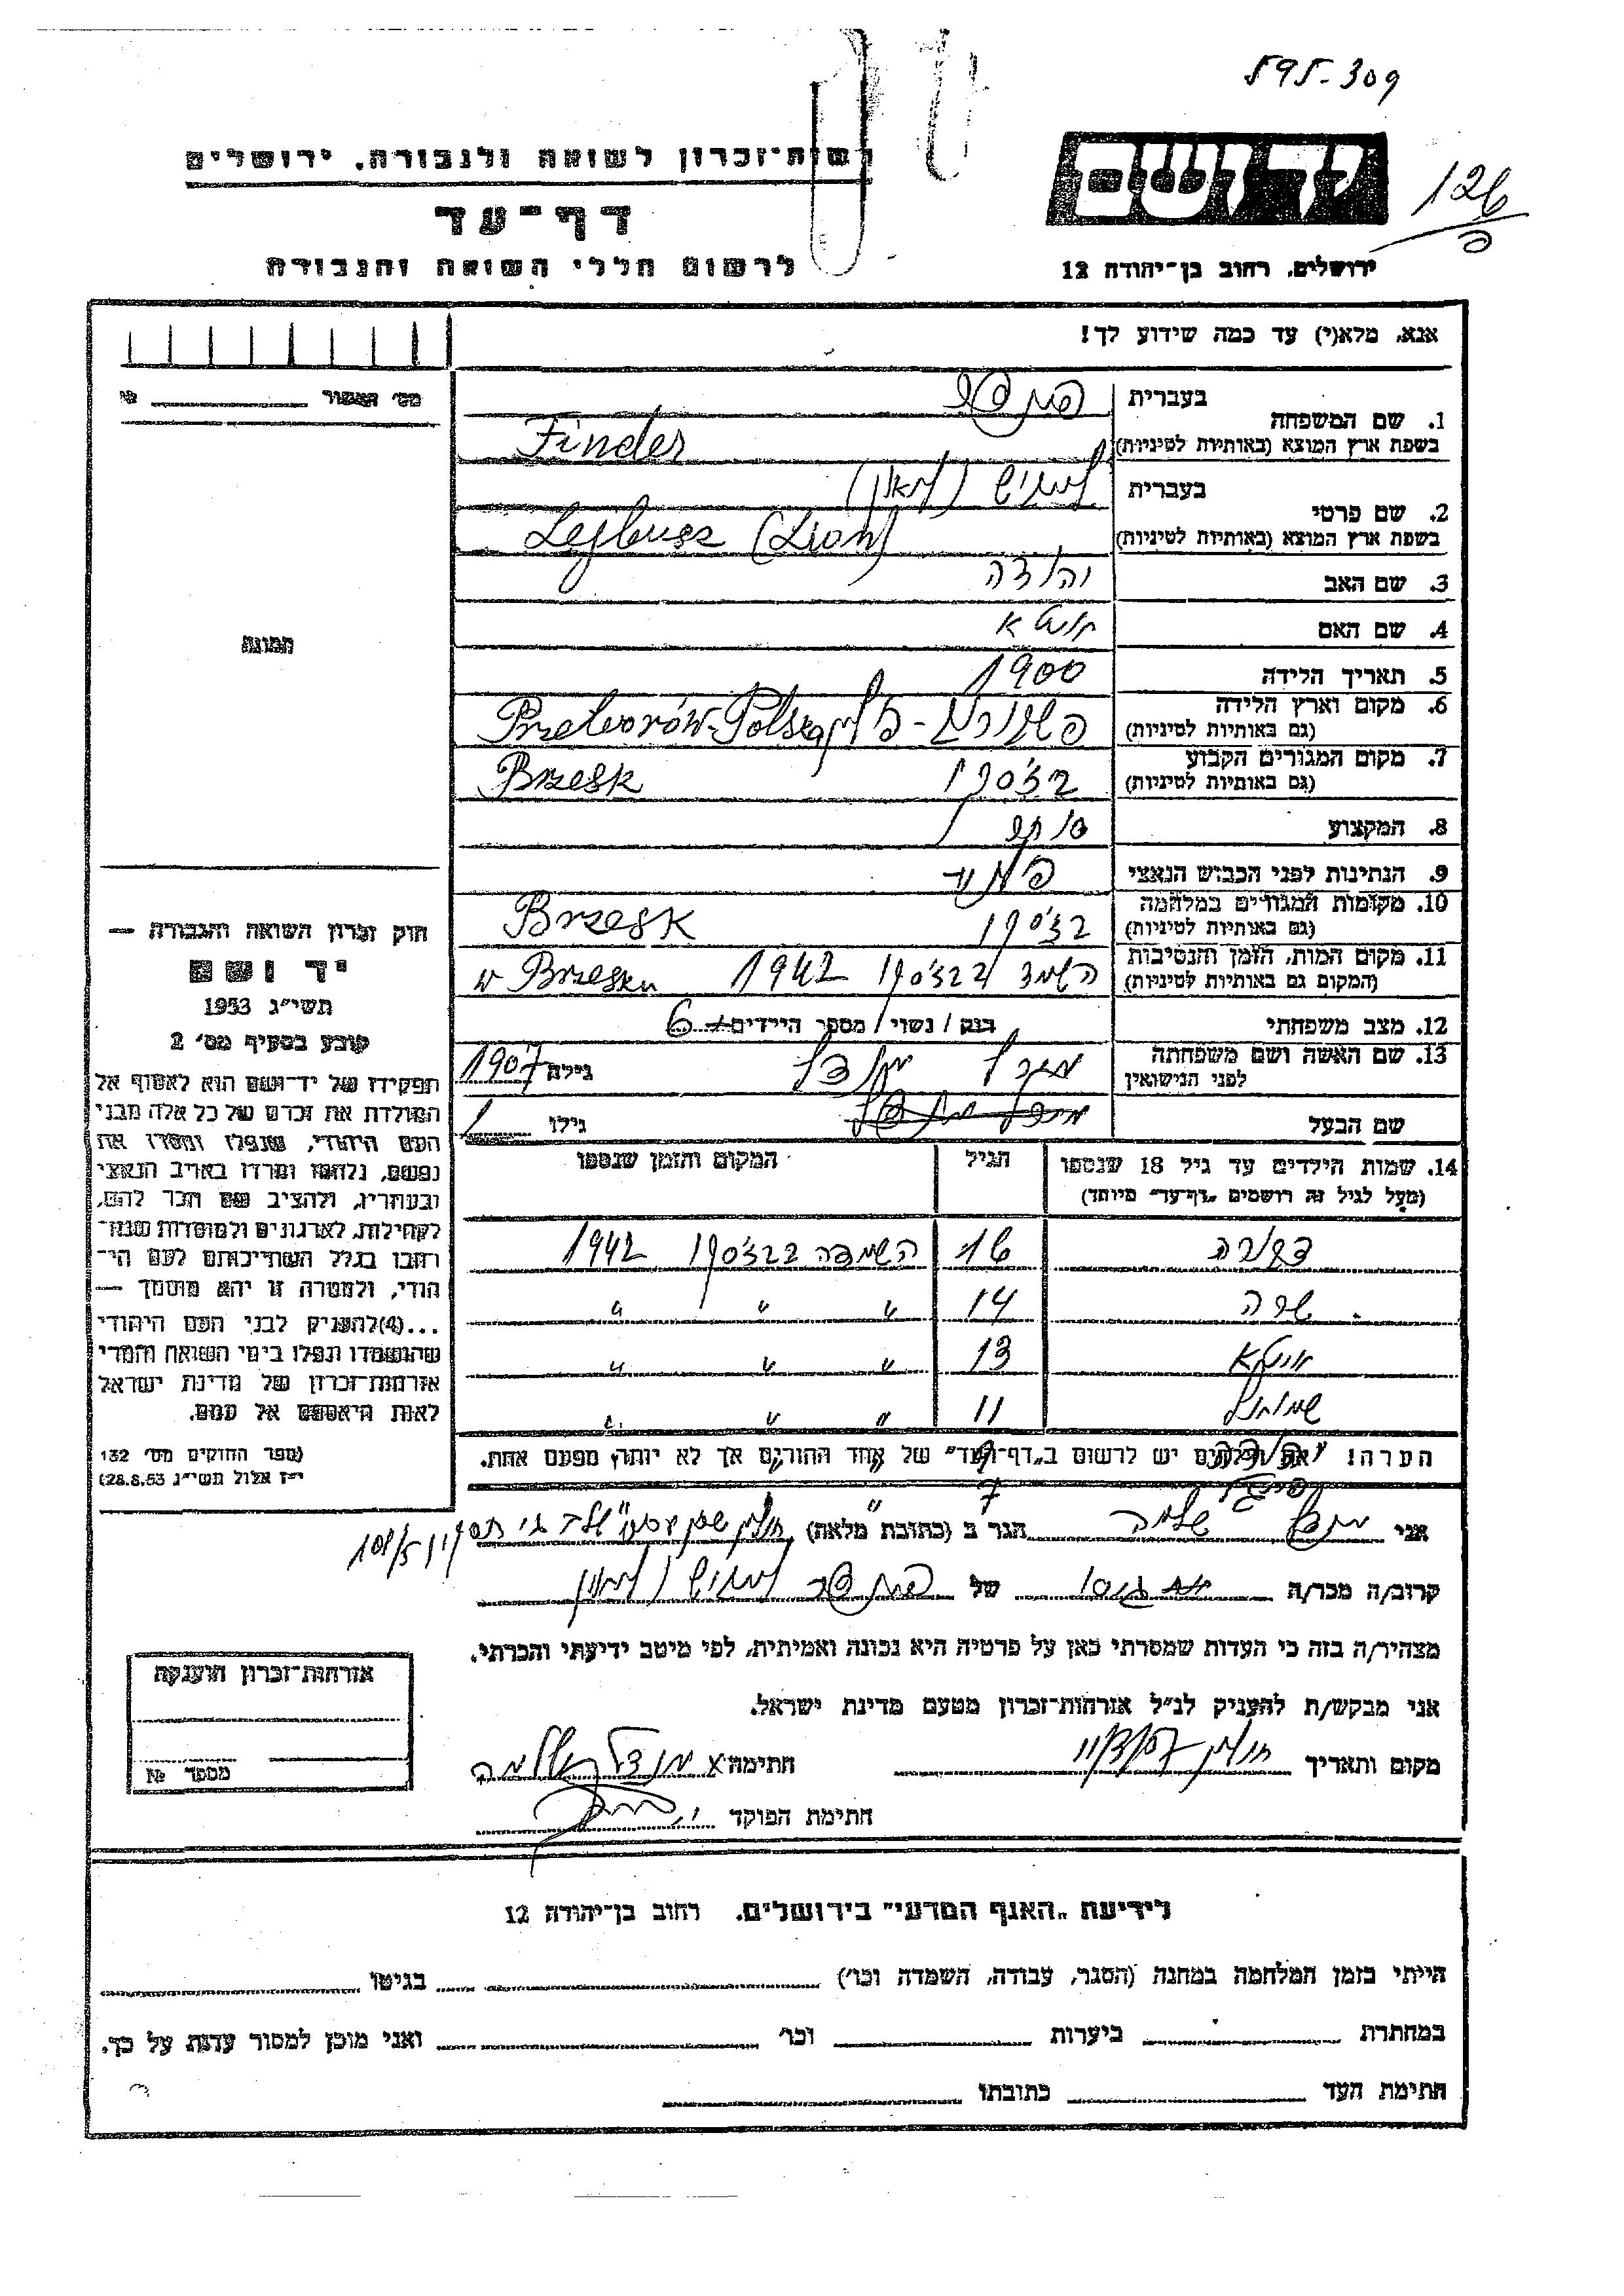 595-309
רשות-זכרון לשואה ולגבורה, ירושלים
יד ושם
126
דף-עד
לרשום חללי השואה והגבורה
ירושלים, רחוב בן-יהודה 12
אנא, מלא(י) עד כמה שידוע לך!
מס' האשור
1. שם המשפחה
בעברית פינדר
בשפת ארץ המוצא (באותיות לטיניות) Finder
2. שם פרטי
בעברית לייביש (ליאון)
בשפת ארץ המוצא (באותיות לטיניות) Lejbusz (Lion)
3. שם האב יהודה
4. שם האם
תמונה
5. תאריך הלידה 1900
6. מקום וארץ הלידה
(גם באותיות לטיניות) Przetworów-Polska
7. מקום המגורים הקבוע
(גם באותיות לטיניות) בז'סק Brzesk
8. המקצוע סוחר
9. הנתינות לפני הכבוש הנאצי
10. מקומות המגורים במלחמה
(גם באותיות לטיניות) בז'סק Brzesk
11. מקום המות, הזמן והנסיבות
(המקום גם באותיות לטיניות) הושמד בבז'סק 1942 w Brzesku
12. מצב משפחתי רווק / נשוי / מספר הילדים 6
13. שם האשה ושם משפחתה
לפני הנישואין מנדל גילה 1907
שם הבעל גילו
14. שמות הילדים עד גיל 18 שנספו
(מעל לגיל זה רושמים "דף-עד" מיוחד)
הגיל
המקום והזמן שנספו
דבורה 16 הושמדה בבז'סק 1942
שרה 14 " " "
13 " " "
שמואל 11 " " "
הערה! את הילדים יש לרשום ב"דף-העד" של אחד ההורים אך לא יותר מפעם אחת.
חוק זכרון השואה והגבורה —
יד ושם
תשי"ג 1953
קובע בסעיף מס' 2
תפקידו של יד-ושם הוא לאסוף אל
המולדת את זכרם של כל אלה מבני
העם היהודי, שנפלו ומסרו את
נפשם, נלחמו ומרדו באויב הנאצי
ובעוזריו, ולהציב שם וזכר להם,
לקהילות, לארגונים ולמוסדות שנח-
רבו בגלל השתייכותם לעם הי-
הודי, ולמטרה זו יהא מוסמך —
...(4) להעניק לבני העם היהודי
שהושמדו ונפלו בימי השואה והמרי
אזרחות-זכרון של מדינת ישראל
לאות היאספם אל עמם.
(ספר החוקים מס' 132
י"ז אלול תשי"ג 28.8.53)
אני מנדל שלמה הגר ב (כתובת מלאה) חולון 108/5
קרוב/ה מכר/ה של פינדר לייביש (ליאון)
מצהיר/ה בזה כי העדות שמסרתי כאן על פרטיה היא נכונה ואמיתית, לפי מיטב ידיעתי והכרתי.
אני מבקש/ת להעניק לנ"ל אזרחות-זכרון מטעם מדינת ישראל.
מקום ותאריך חולון חתימה מנדל שלמה
חתימת הפוקד
אזרחות-זכרון הוענקה
מספר №
לידיעת "האגף המדעי" בירושלים, רחוב בן-יהודה 12
הייתי בזמן המלחמה במחנה (הסגר, עבודה, השמדה וכו') בגיטו
במחתרת ביערות וכו' ואני מוכן למסור עדות על כך.
חתימת העד כתובתו